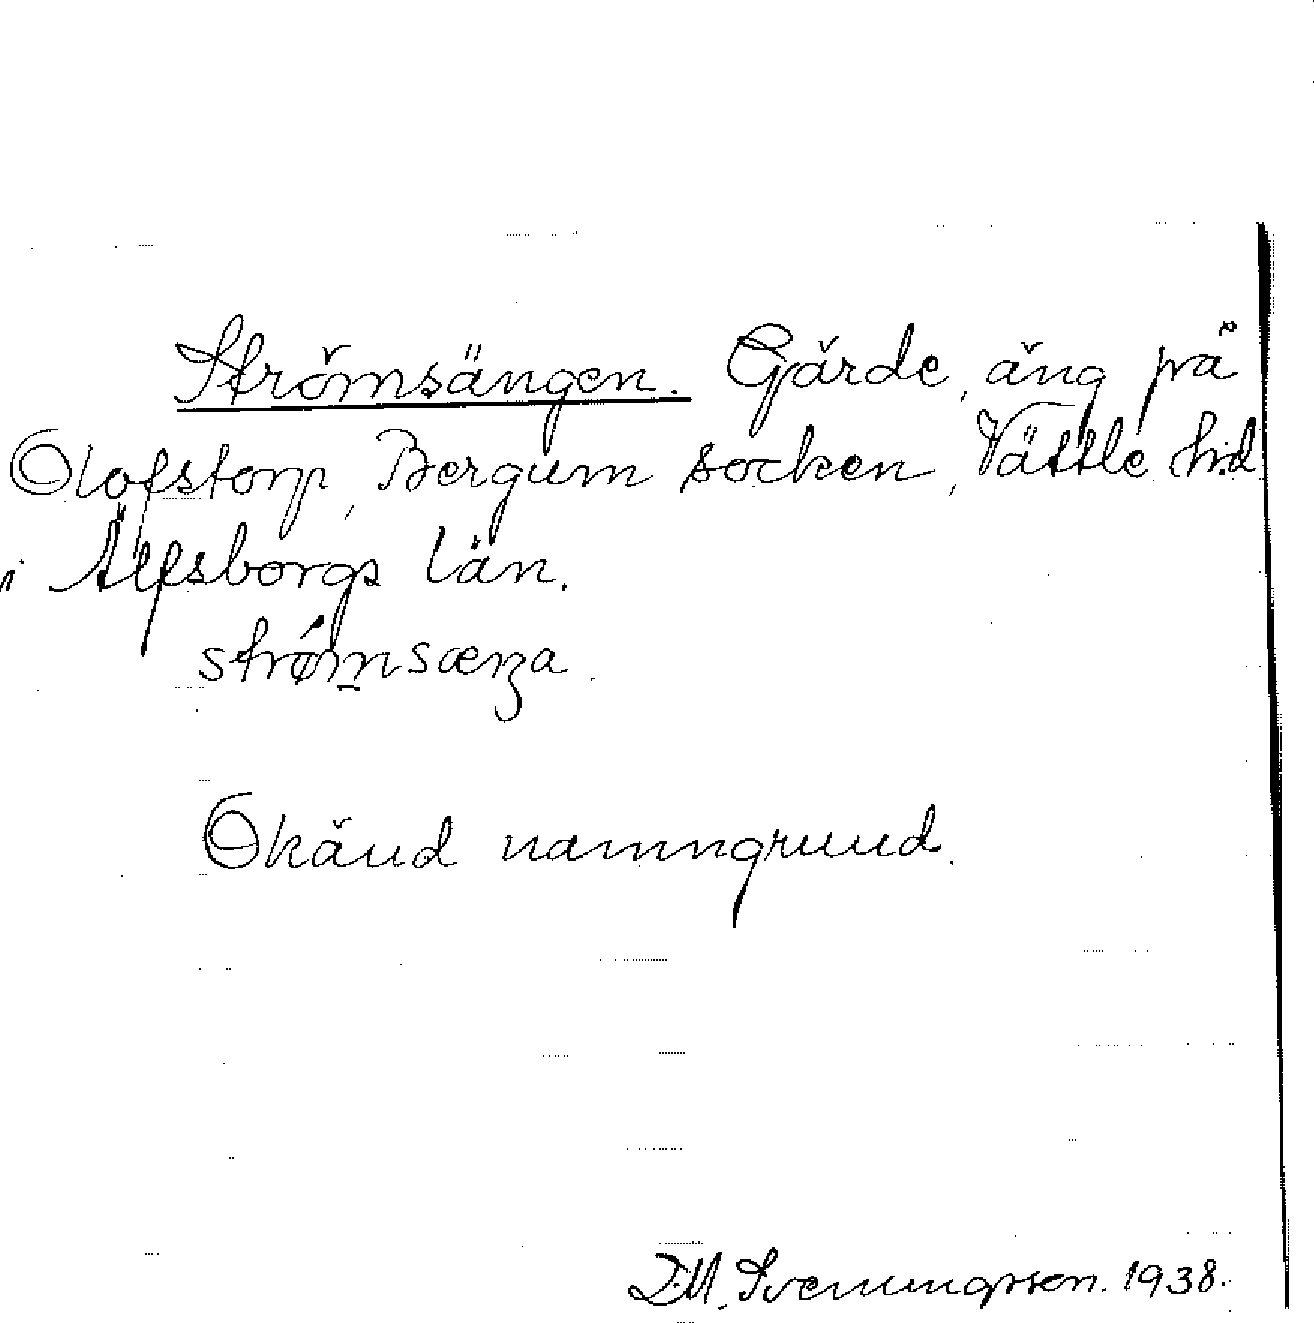 Strömsängen. Gärde, äng på
Olofstorp, Bergum socken, Vättle hd
i Älfsborgs län.
strø̀m̲sæŋa.
Okänd namngrund.
D.M. Svenungsson. 1938.